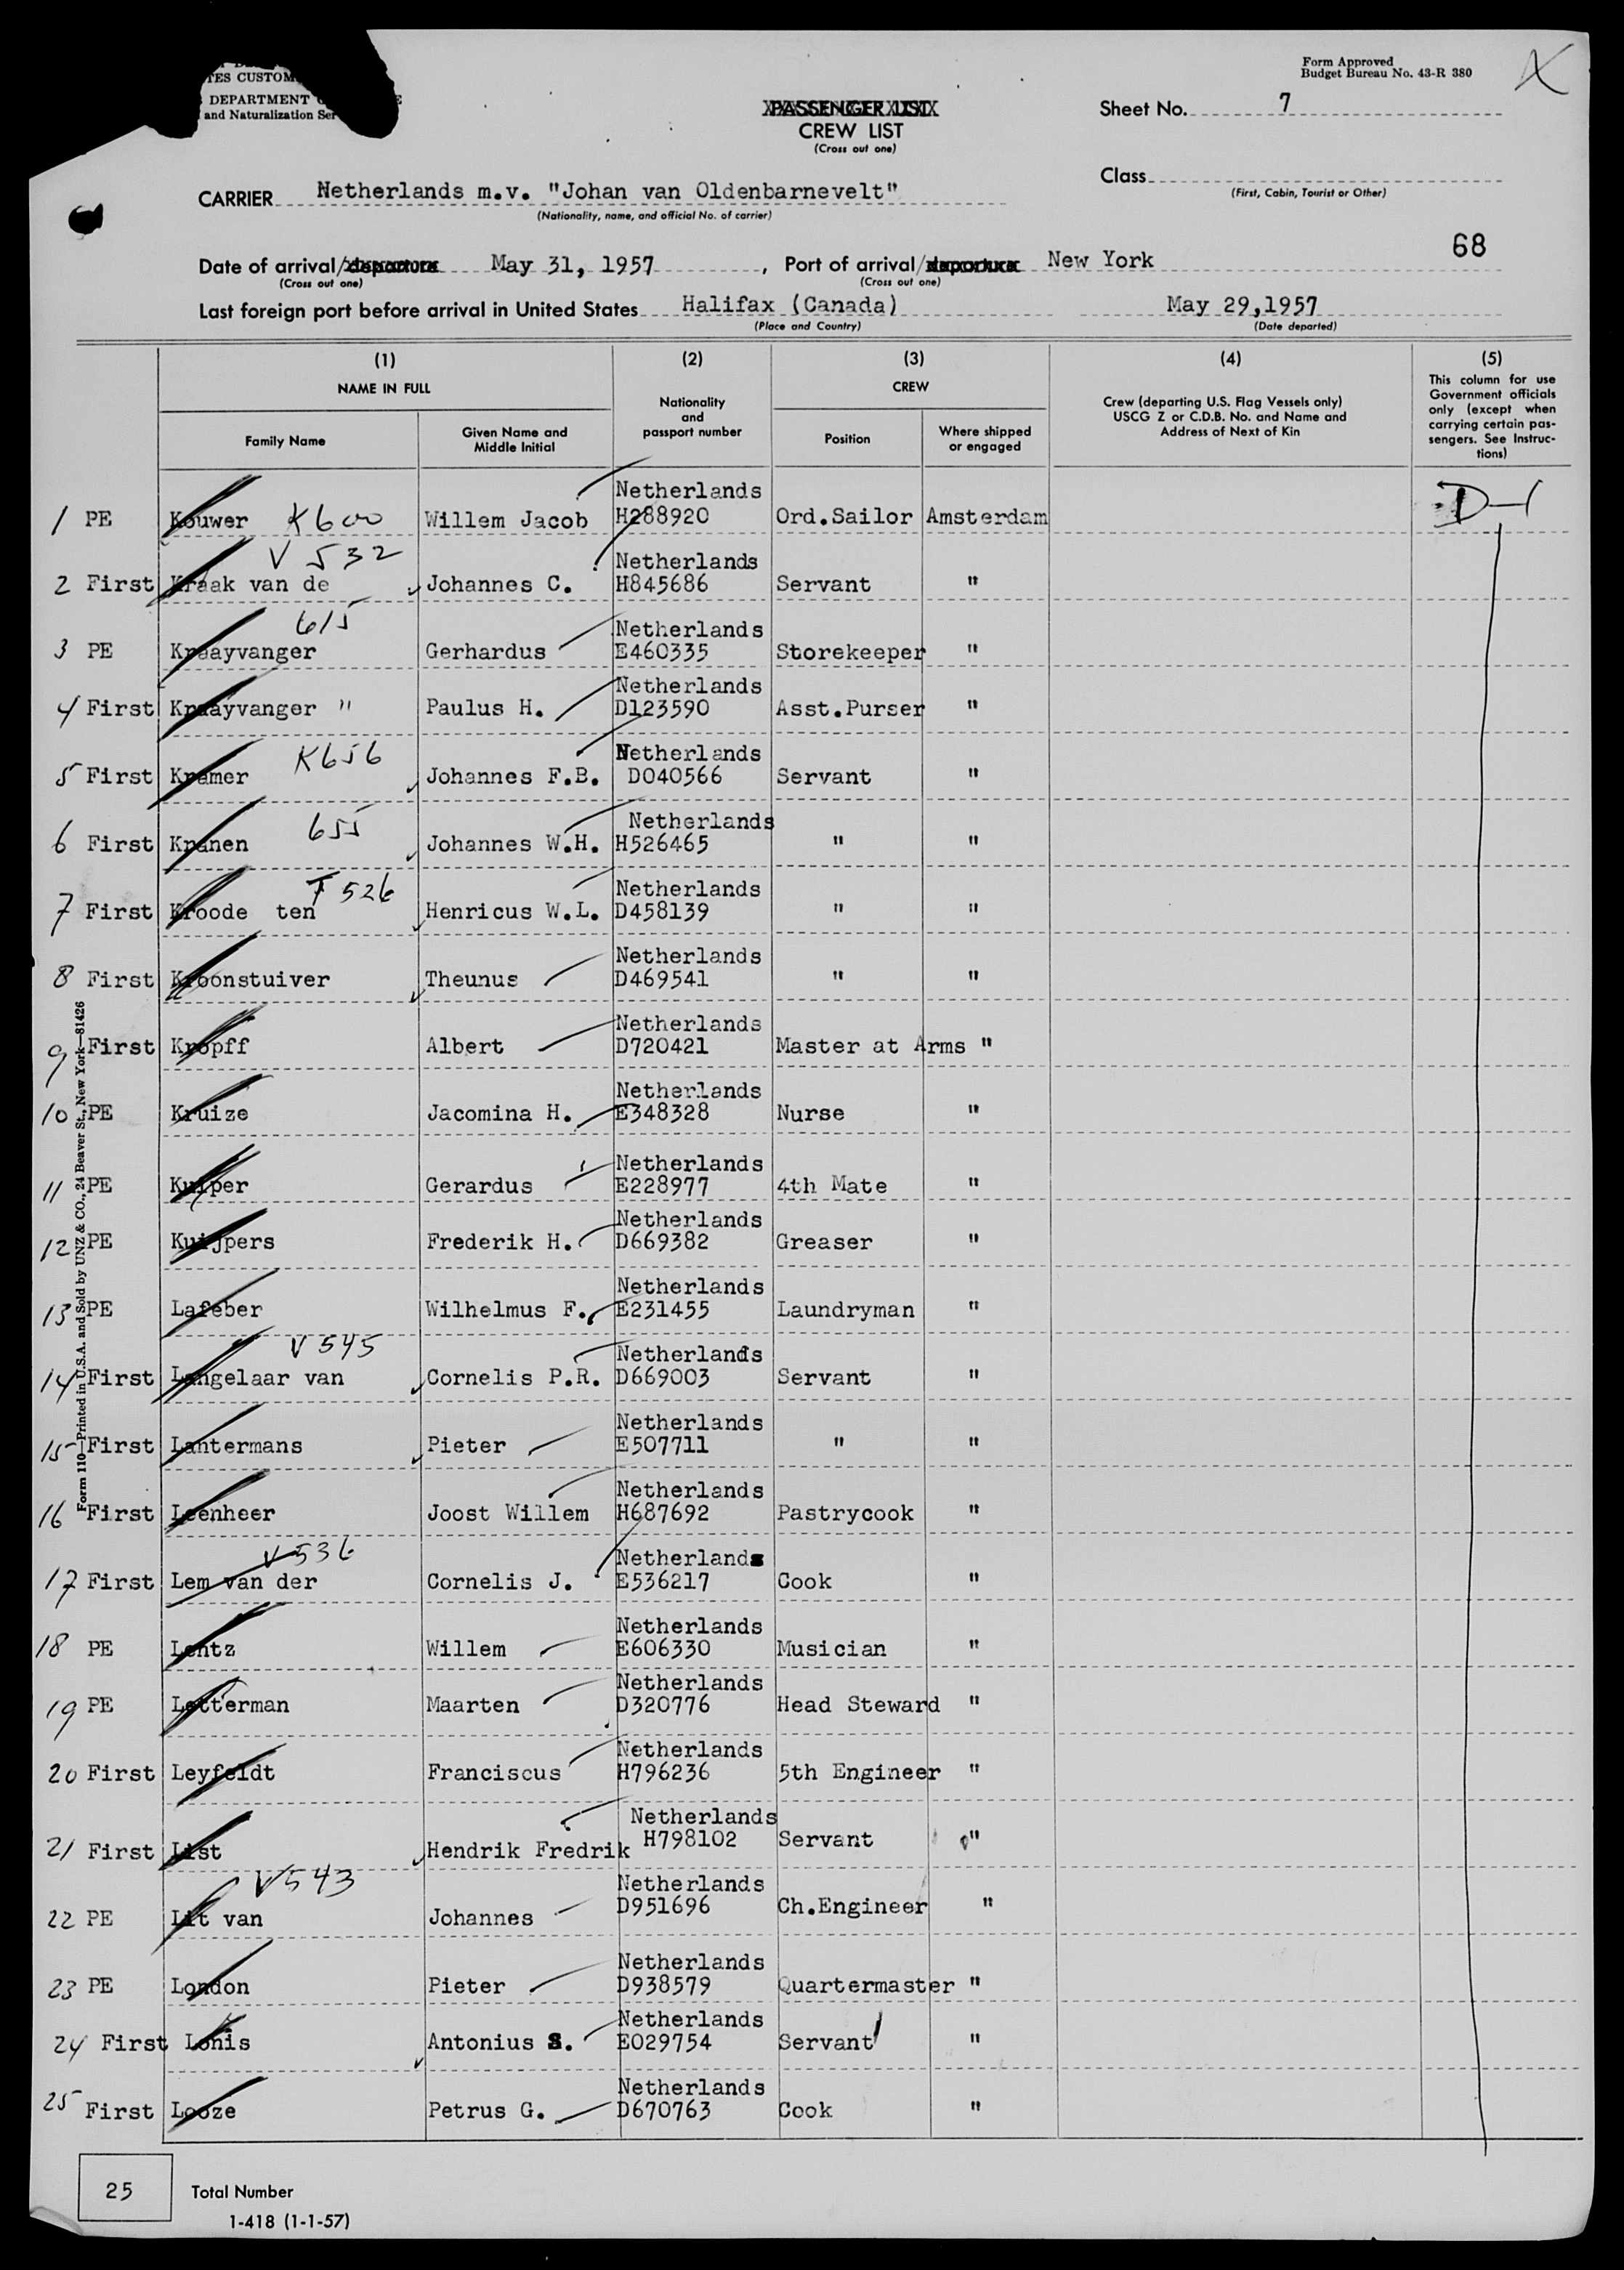 TES CUSTOM
DEPARTMENT
and Naturalization Ser
Form Approved
Budget Bureau No. 43-R 380
X
PASSENGER LIST
CREW LIST
(Cross out one)
Sheet No. 7
Class
(First, Cabin, Tourist or Other)
CARRIER Netherlands m.v. "Johan van Oldenbarnevelt"
(Nationality, name, and official No. of carrier)
68
Date of arrival/departure May 31, 1957, Port of arrival/departure New York
(Cross out one) (Cross out one)
Last foreign port before arrival in United States Halifax (Canada) May 29,1957
(Place and Country) (Date departed)
(1) (2) (3) (4) (5)
NAME IN FULL
Family Name
Given Name and Middle Initial
Nationality and passport number
CREW
Position
Where shipped or engaged
Crew (departing U.S. Flag Vessels only)
USCG Z or C.D.B. No. and Name and
Address of Next of Kin
This column for use
Government officials
only (except when
carrying certain pas-
sengers. See Instruc-
tions)
Netherlands
1 PE Kouwer K600 Willem Jacob H288920 Ord.Sailor Amsterdam D-1
V 532 Netherlands
2 First Kraak van de Johannes C. H845686 Servant "
615 Netherlands
3 PE Kraayvanger Gerhardus E460335 Storekeeper "
Netherlands
4 First Kraayvanger " Paulus H. D123590 Asst.Purser "
K656 Netherlands
5 First Kramer Johannes F.B. D040566 Servant "
655 Netherlands
6 First Kranen Johannes W.H. H526465 " "
T 526 Netherlands
7 First Kroode ten Henricus W.L. D458139 " "
Netherlands
8 First Kroonstuiver Theunus D469541 " "
Netherlands
9 First Kropff Albert D720421 Master at Arms "
Netherlands
10 PE Kruize Jacomina H. E348328 Nurse "
Netherlands
11 PE Kuiper Gerardus E228977 4th Mate "
Netherlands
12 PE Kuijpers Frederik H. D669382 Greaser "
Netherlands
13 PE Lafeber Wilhelmus F. E231455 Laundryman "
V 545 Netherlands
14 First Langelaar van Cornelis P.R. D669003 Servant "
Netherlands
15 First Lantermans Pieter E507711 " "
Netherlands
16 First Leenheer Joost Willem H687692 Pastrycook "
V 536 Netherlands
17 First Lem van der Cornelis J. E536217 Cook "
Netherlands
18 PE Lentz Willem E606330 Musician "
Netherlands
19 PE Letterman Maarten D320776 Head Steward "
Netherlands
20 First Leyfeldt Franciscus H796236 5th Engineer "
Netherlands
21 First List Hendrik Fredrik H798102 Servant "
V543 Netherlands
22 PE Lit van Johannes D951696 Ch.Engineer "
Netherlands
23 PE London Pieter D938579 Quartermaster "
Netherlands
24 First Lonis Antonius S. E029754 Servant "
Netherlands
25 First Looze Petrus G. D670763 Cook "
Form 110—Printed in U.S.A. and Sold by UNZ & CO., 24 Beaver St., New York—81426
25 Total Number
1-418 (1-1-57)